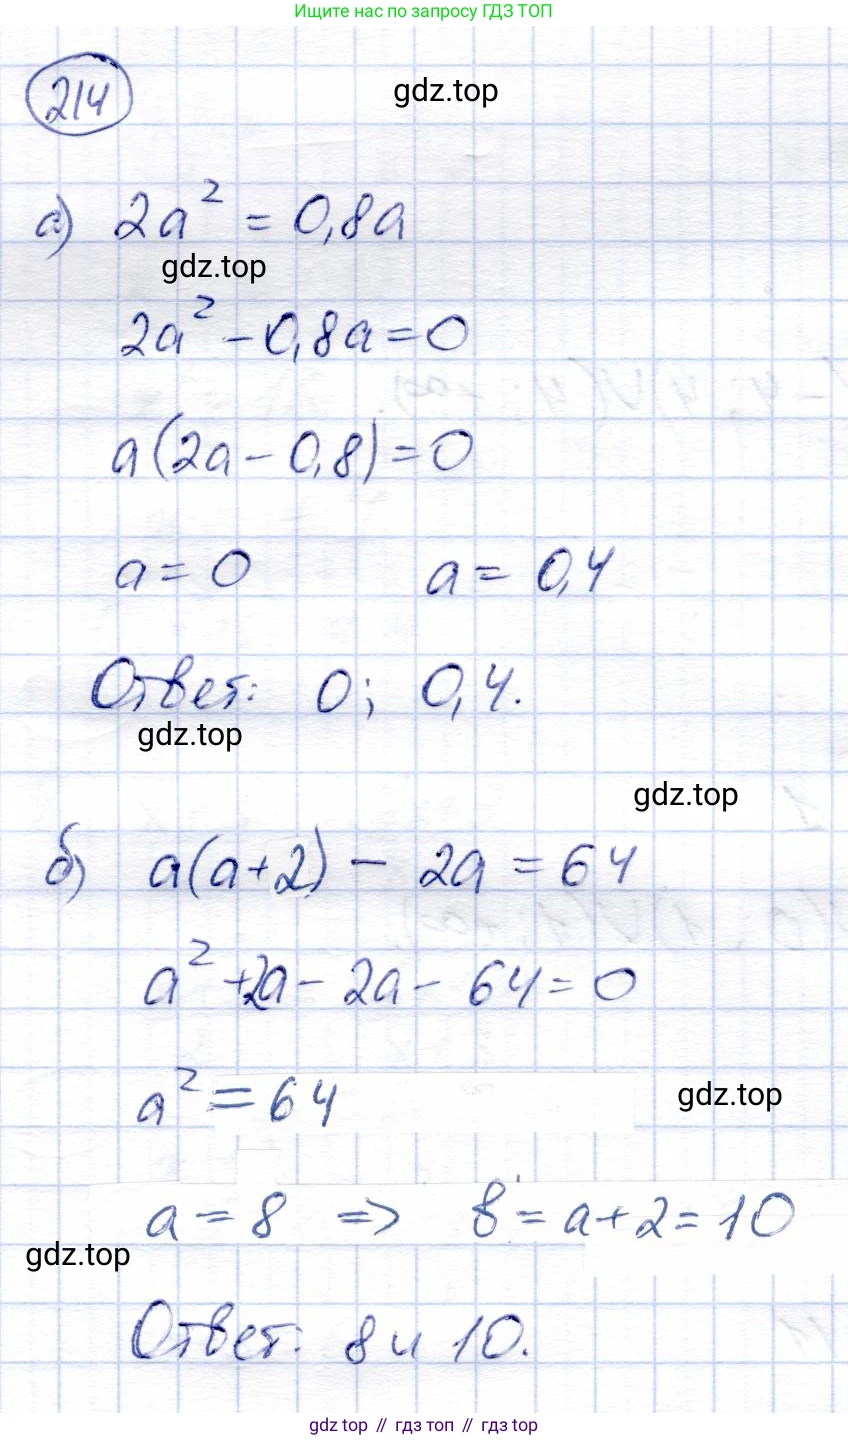 Ищите нас по запросу ГДЗ ТОП
214
gdz.top
а) 2a² = 0,8a
gdz.top
2a² - 0,8a = 0
a(2a - 0,8) = 0
a = 0 a = 0,4
Ответ: 0; 0,4.
gdz.top
gdz.top
б) a(a+2) - 2a = 64
a² + 2a - 2a - 64 = 0
a² = 64
gdz.top
a = 8 => в = a + 2 = 10
gdz.top
Ответ: 8 и 10.
gdz top // гдз топ // gdz top